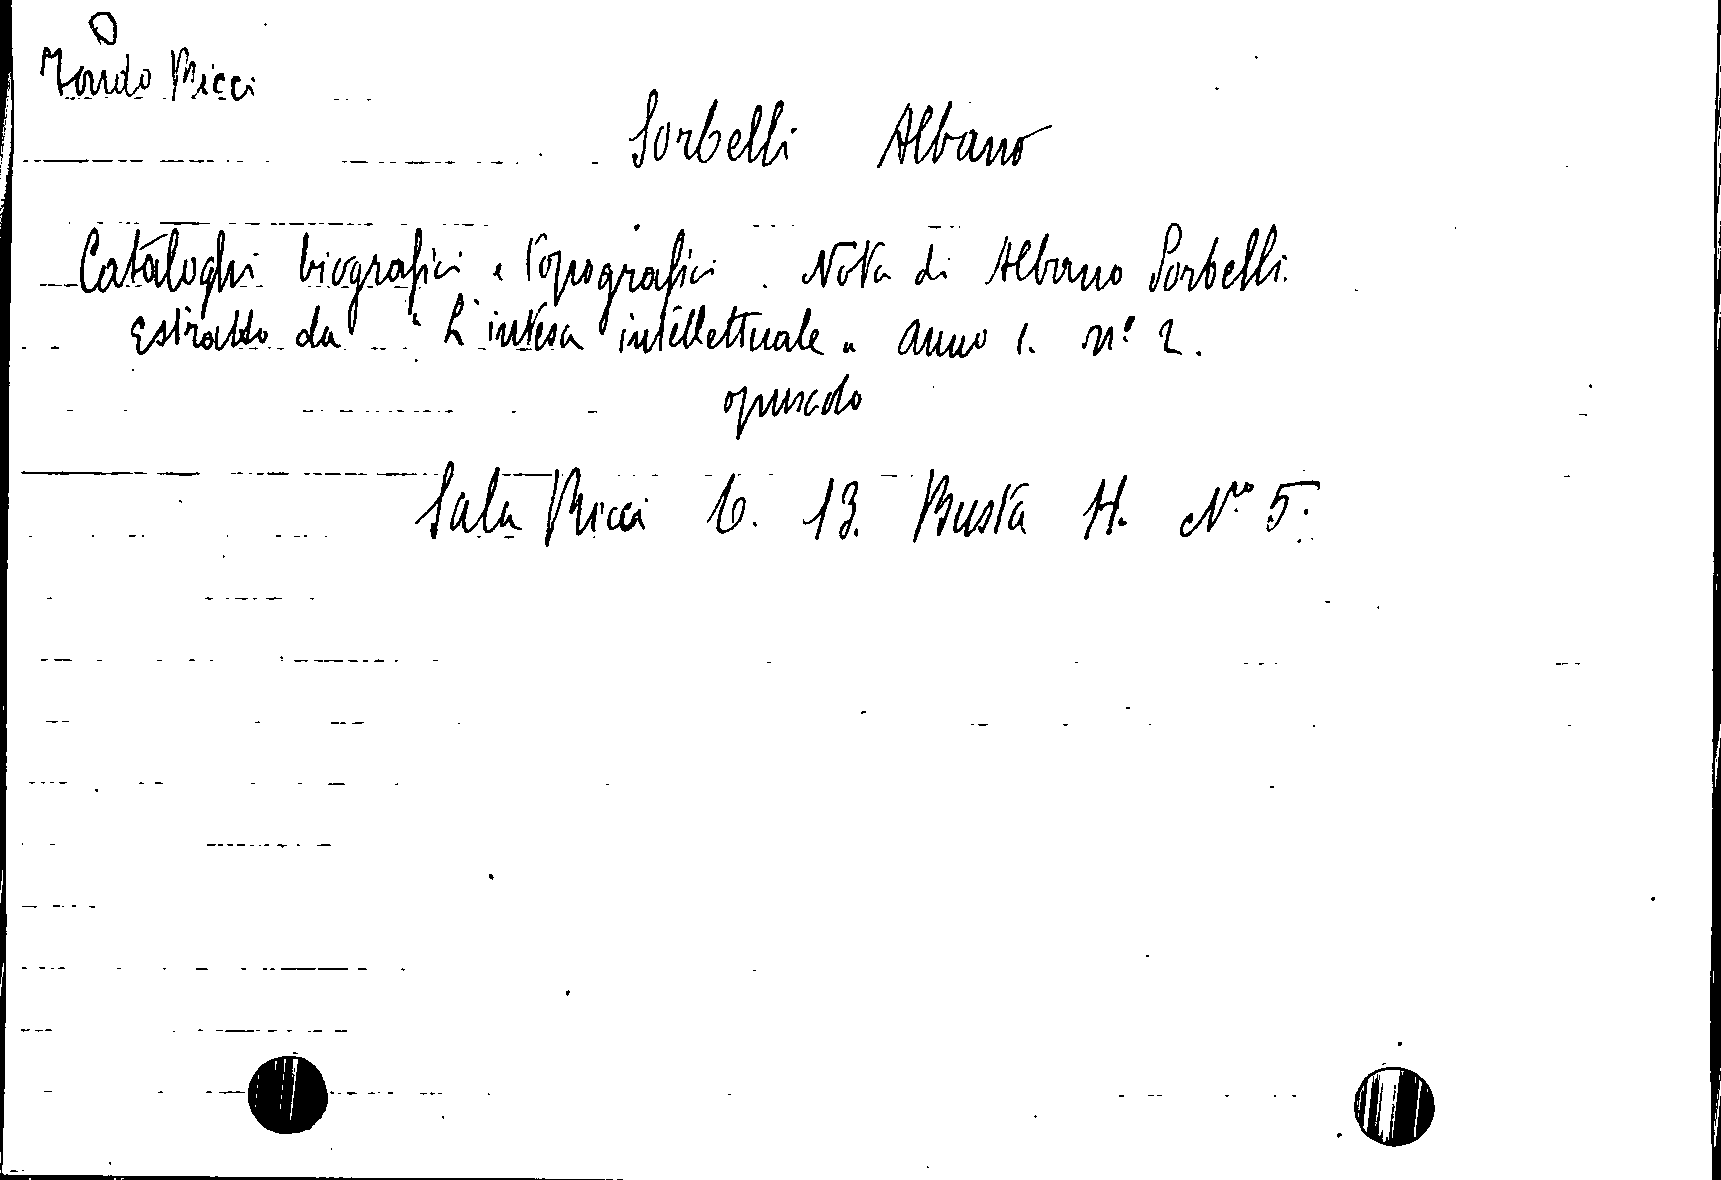 Fondo Ricci
Sorbelli Albano
Cataloghi biografici e topografici. Nota di Albano Sorbelli.
Estratto da "L'intesa intellettuale" anno 1. n° 2.
opuscolo
Sala Ricci C. 13. Busta H. N.° 5.